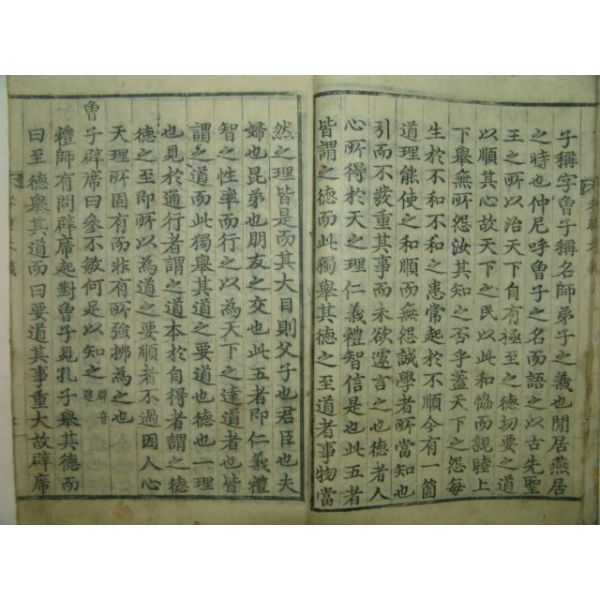 子稱字魯子稱名師弟子之義也閒居燕居
之時也仲尼呼魯子之名而語之以古先聖
王之所以治天下自有極至之德切要之道
以順其心故天下之民以此和恊而親睦上
下舉無所怨汝其知之否乎蓋天下之怨每
生於不和不和之患常起於不順今有一箇
道理能使之和順而無怨誠學者所當知也
引而不發重其事而未欲遽言之也德者人
心所得於天之理仁義禮智信是也此五者
皆謂之德而此獨舉其德之至道者事物當
然之理皆是而其大目則父子也君臣也夫
婦也昆弟也朋友之交也此五者即仁義禮
智之性率而行之以為天下之達道者也皆
謂之道而此獨舉其道之要道也德也一理
也見於通行者謂之道本於自得者謂之德
德之至即所以為道之要順者不過因人心
天理所固有而非有所強拂為之也
魯子辟席曰參不敏何足以知之 辟音避
禮師有問辟席起對魯子見孔子舉其德而
曰至德舉其道而曰要道其事重大故辟席